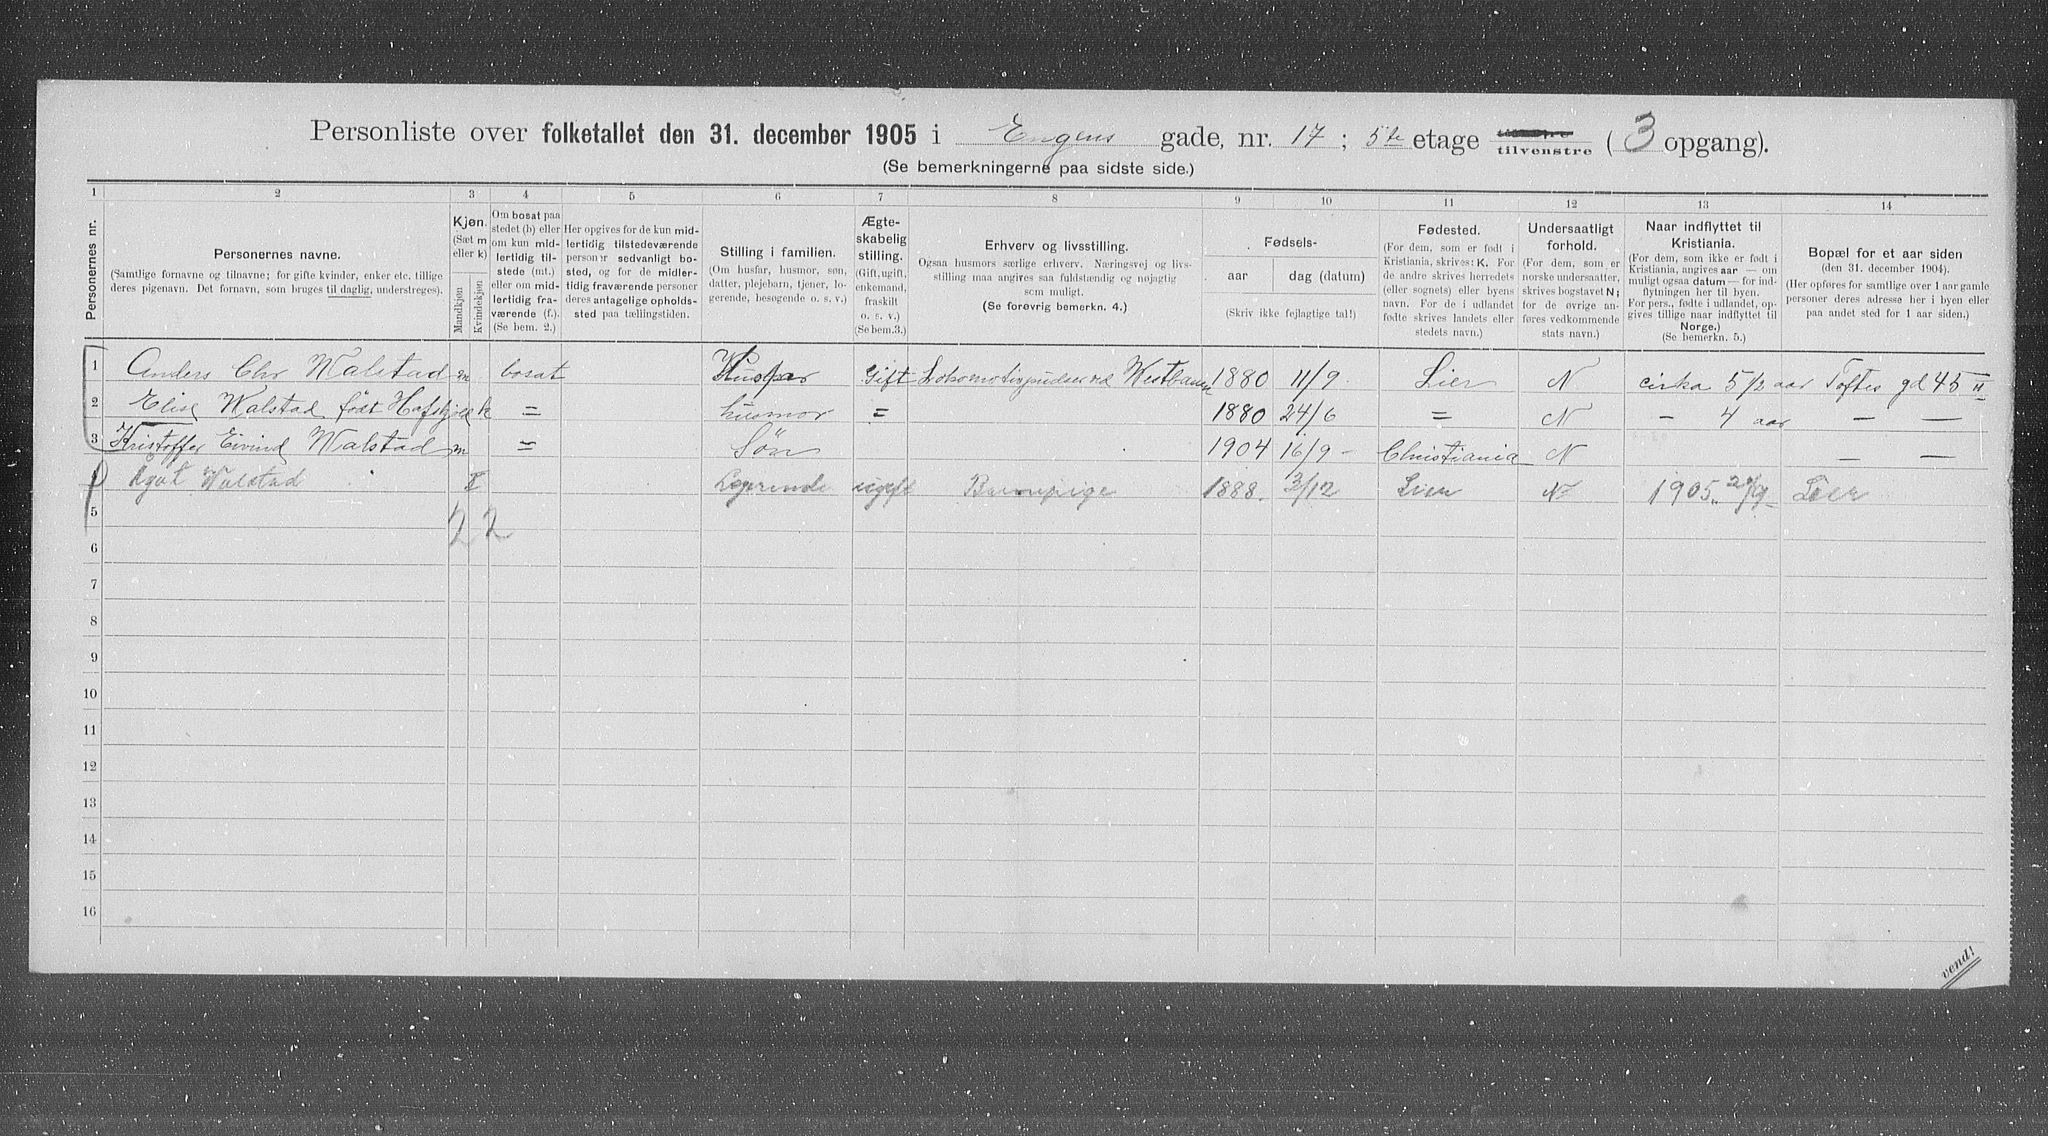 Personliste over folketallet den 31. december 1905 i Engens gade, nr. 17; 5te etage tilvenstre (3 opgang).
(Se bemerkningerne paa sidste side.)
1 2 3 4 5 6 7 8 9 10 11 12 13 14
Personernes nr.
Personernes navne.
(Samtlige fornavne og tilnavne; for gifte kvinder, enker etc. tillige
deres pigenavn. Det fornavn, som bruges til daglig, understreges).
Kjøn.
(Sæt m
eller k)
Mandkjøn
Kvindekjøn
Om bosat paa
stedet (b) eller
om kun mid-
lertidig til-
stede (mt.)
eller om mid-
lertidig fra-
værende (f.).
(Se bem. 2.)
Her opgives for de kun mid-
lertidig tilstedeværende
personer sedvanligt bo-
sted, og for de midler-
tidig fraværende personer
deres antagelige opholds-
sted paa tællingstiden.
Stilling i familien.
(Om husfar, husmor, søn,
datter, plejebarn, tjener, lo-
gerende, besøgende o. s. v.)
Ægte-
skabelig
stilling.
(Gift, ugift,
enkemand,
fraskilt
o. s. v.)
(Se bem.3.)
Erhverv og livsstilling.
Ogsaa husmors særlige erhverv. Næringsvej og livs-
stilling maa angives saa fuldstændig og nøjagtig
som muligt.
(Se forøvrig bemerkn. 4.)
Fødsels-
aar
dag (datum)
(Skriv ikke fejlagtige tal!)
Fødested.
(For dem, som er født i
Kristiania, skrives: K. For
de andre skrives herredets
(eller sognets) eller byens
navn. For de i udlandet
fødte skrives landets eller
stedets navn.)
Undersaatligt
forhold.
(For dem, som er
norske undersaatter,
skrives bogstavet N;
for de øvrige an-
føres vedkommende
stats navn.)
Naar indflyttet til
Kristiania.
(For dem, som ikke er født i
Kristiania, angives aar — om
muligt ogsaa datum — for ind-
flytningen her til byen.
For pers., fødte i udlandet, op-
gives tillige naar indflyttet til
Norge.)
(Se bemerkn. 5.)
Bopæl for et aar siden
(den 31. december 1904).
(Her opføres for samtlige over 1 aar gamle
personer deres adresse her i byen eller
paa andet sted for 1 aar siden.)
1 Anders Chr Walstad m bosat Husfar Gift Lokomotivpudser vd Westbanen 1880 11/9 Lier N cirka 5 1/2 aar Toftes gd 45 II
2 Elise Walstad født k = husmor = 1880 24/6 = N — 4 aar — —
3 Kristoffer Eivind Walstad m = Søn 1904 16/9 — Christiania N — —
Walstad Logerende ugift Barnepige 1888. 3/12 Lier N 1905 Lier
2 2
5
6
7
8
9
10
11
12
13
14
15
15
16
vend!